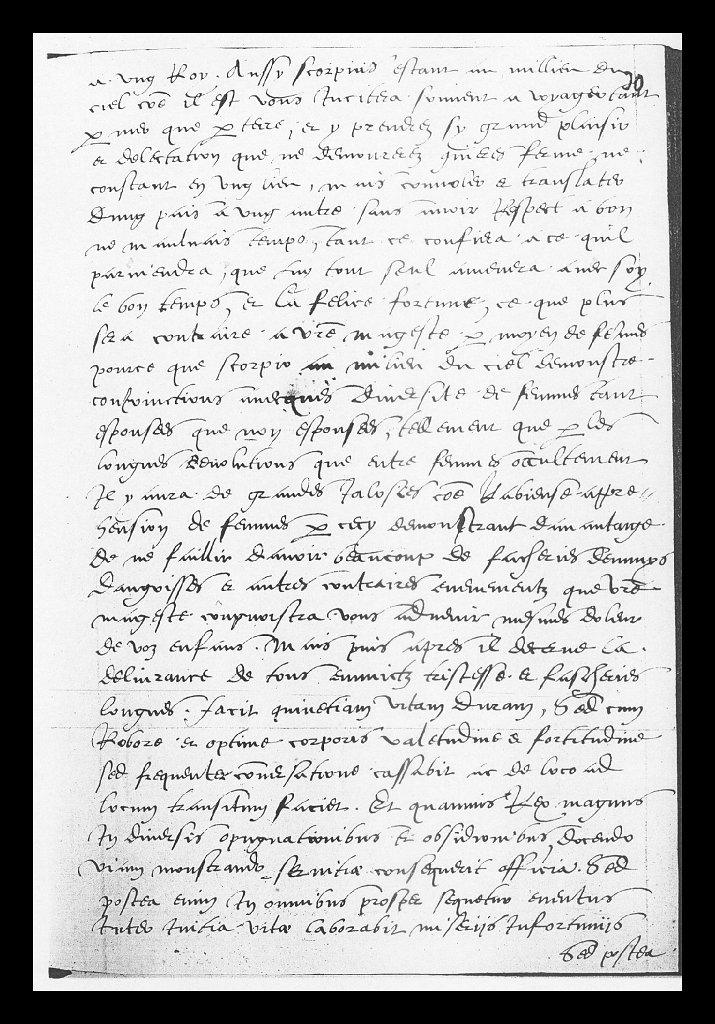 20
a ung Roy. Aussy scorpius estant au millieu du
ciel coē il est vous Incitera souvent a voyager tant
p mer que p terre, et y prendrez sy grand plaisir
et delectation que ne demourerez guieres ferme ne
constant en ung lieu, mais convoler et translater
dung pais a ung autre sans avoir Respect a bon
ne maulvais temps, tant ce confiera a ce quil
parviendra, que luy tout seul amenera avec soy
le bon temps, et la felice fortune, ce que plus
sera contraire a vrē mageste p moyen de femēs
pource que scorpio au milieu du ciel demonstre
conjoinctions avecques diversite de femmes tant
espousees que non espousees, tellement que p les
longues Revolutions que entre femmes occultement
Il y aura de grandes Jalosies coē Rabieuse appre=
hension de femmes p cecy demonstrant davantaige
de ne faillir davoir beaucoup de facheries dennuys
dangoisses et autres contraires evenementz que vrē
mageste congnoistra vous advenir mesmes doleur
de voz enfans. Mais puis apres il decerne la
delivrance de tous ennuictz tristesse et fascheries
longues. facit quinetiam vitam duram, Sed cum
Robore et optime corporis valetudine & fortitudine
sed frequenter conversatione cassabit ac de loco ad
locum transitum faciet. Et quamvis Rex magnus
In diversis opugnationibus et obsidionibus, docendo
viam monstrando servitiæ consequerit officia. Sed
postea enim In omnibus prosper sequetur eventus
Inter Initia vitæ laborabit miseriis Infortuniis
Sed postea